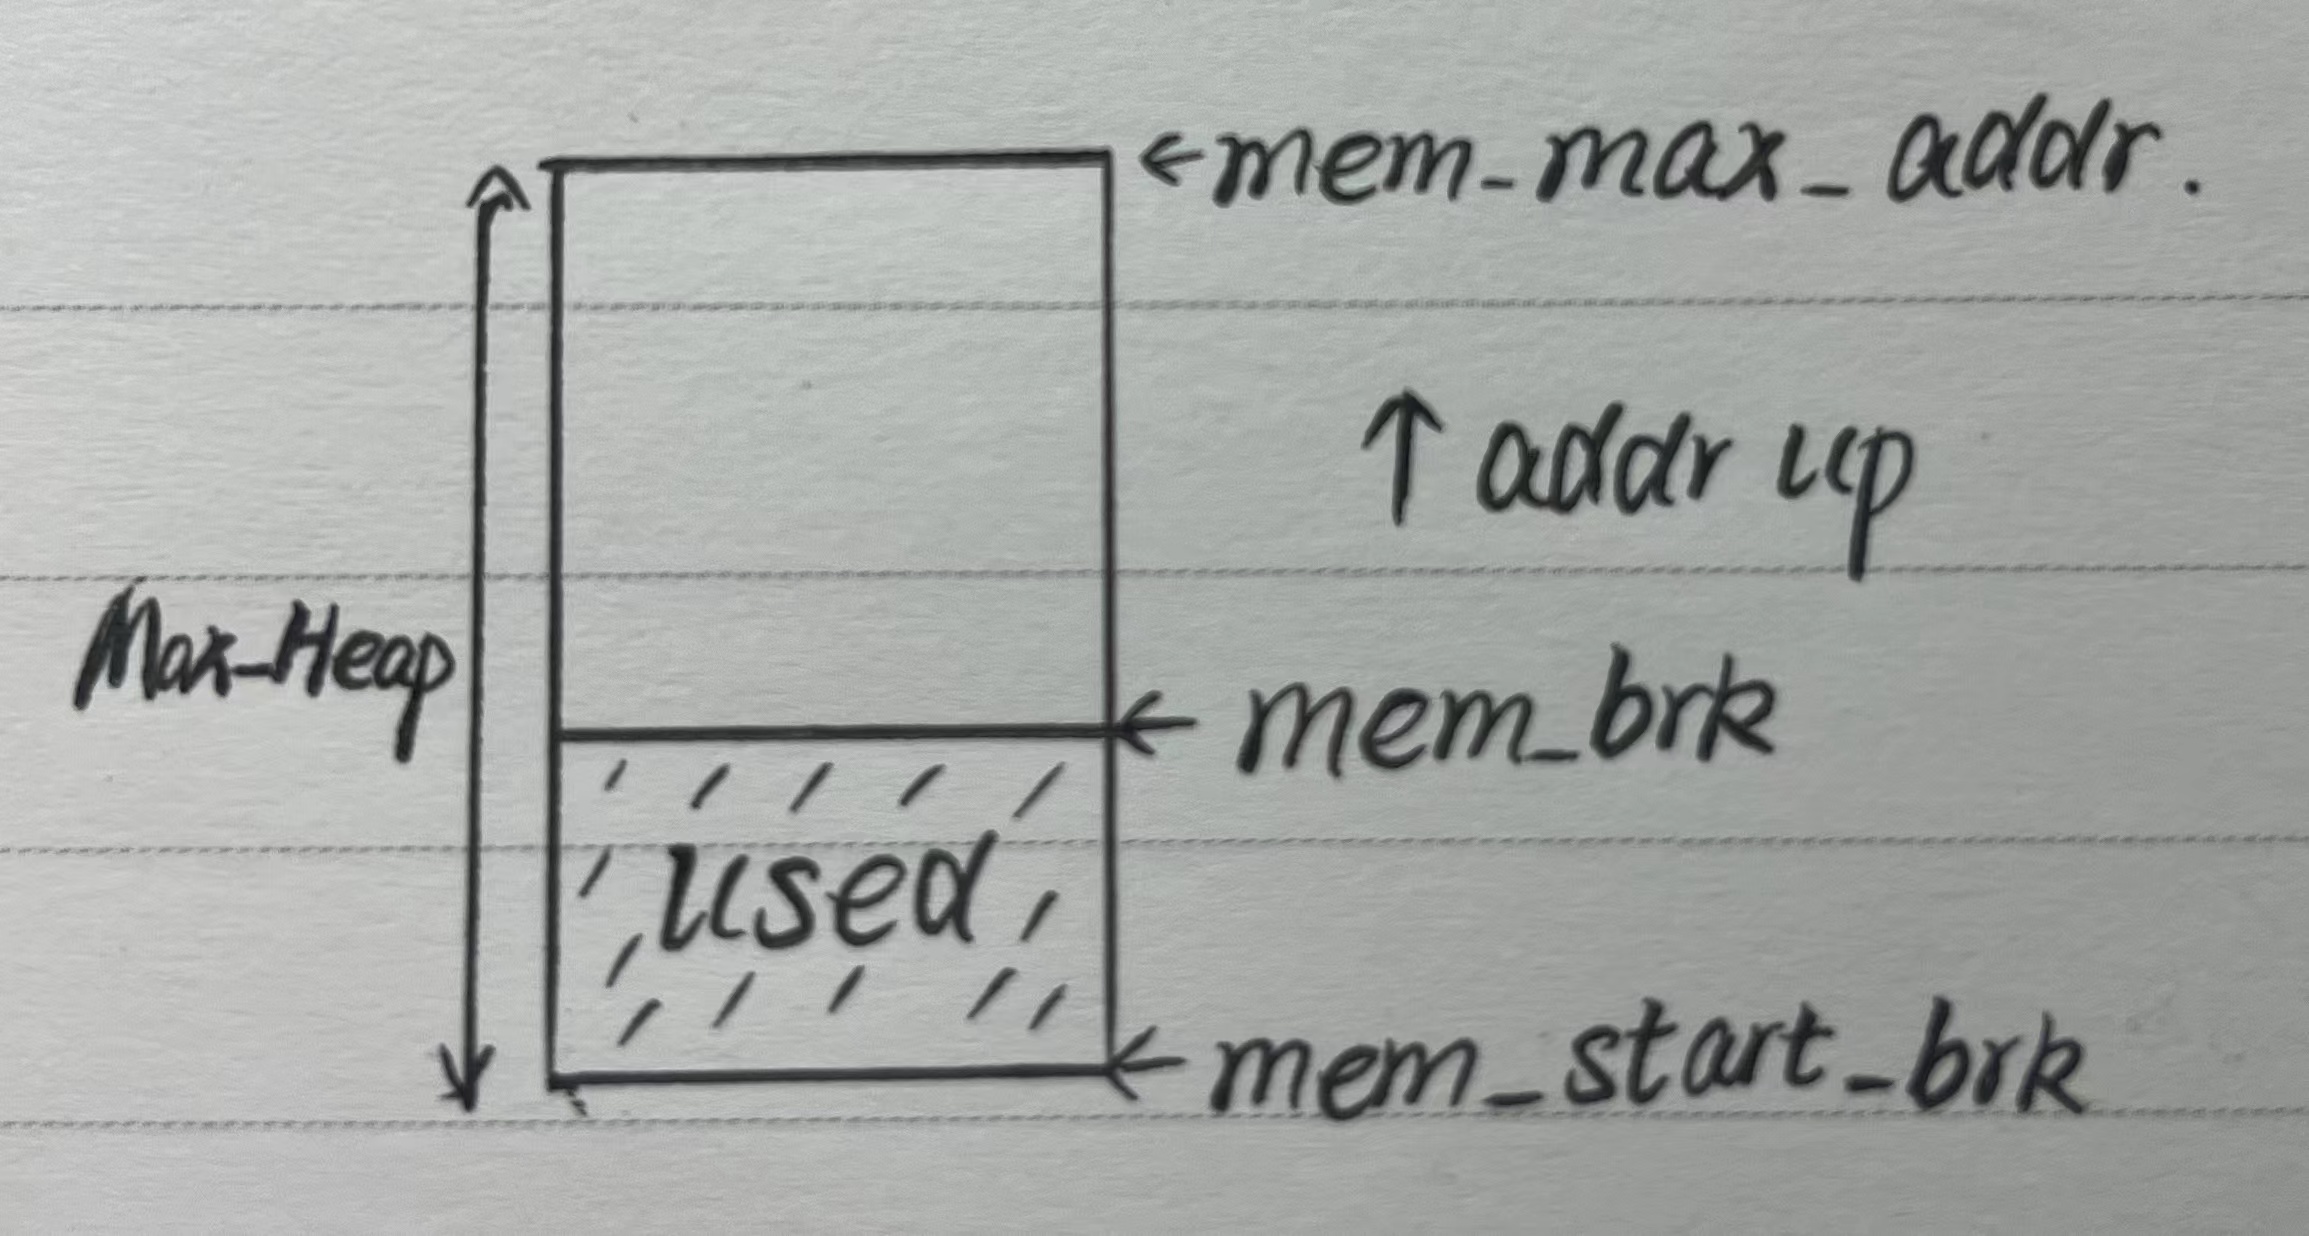 ←mem_max_addr.
↑ addr up
Max_Heap
← mem_brk
used
← mem_start_brk